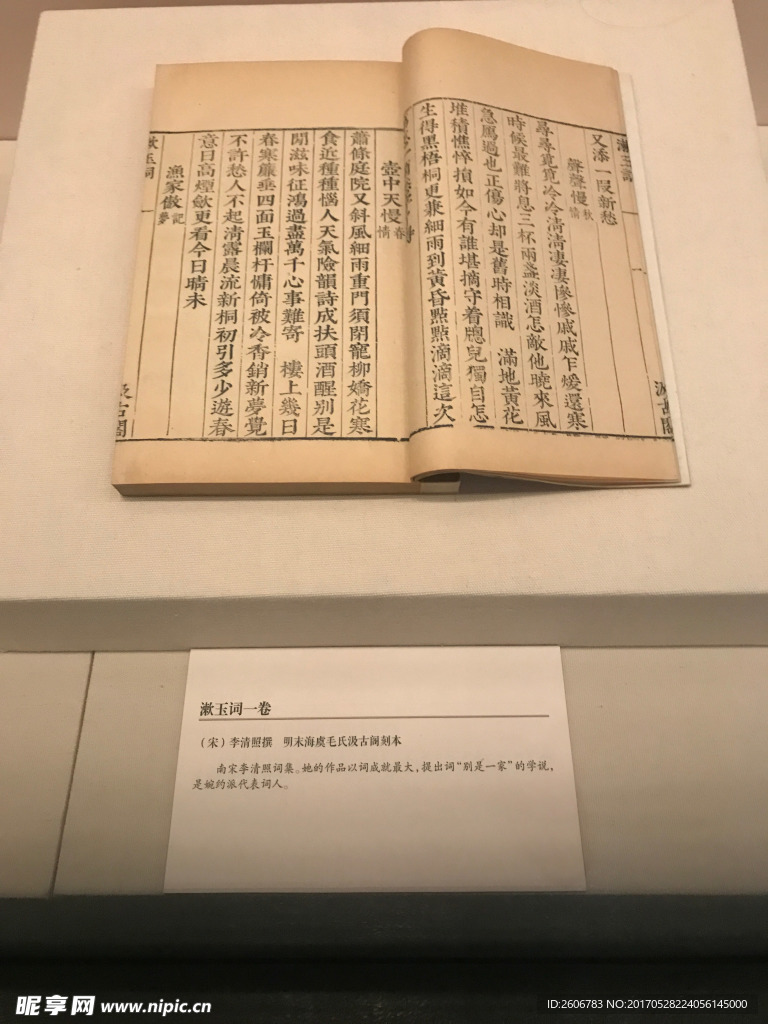 漱玉詞
一
汲古閣
又添一段新愁
聲聲慢 秋情
尋尋覓覓冷冷淸淸凄凄慘慘戚戚乍煖還寒
時候最難將息三杯兩盞淡酒怎敵他曉來風
急鴈過也正傷心却是舊時相識 滿地黃花
堆積憔悴損如今有誰堪摘守着牕兒獨自怎
生得黑梧桐更兼細雨到黃昏點點滴滴這次
壺中天慢 春情
蕭條庭院又斜風細雨重門須閉寵柳嬌花寒
食近種種惱人天氣險韻詩成扶頭酒醒别是
閒滋味征鴻過盡萬千心事難寄 樓上幾日
春寒簾垂四面玉欄杆慵倚被冷香銷新夢覺
不許愁人不起淸露晨流新桐初引多少遊春
意日高煙歛更看今日晴未
漁家傲 記夢
漱玉詞
一
汲古閣
漱玉词一卷
（宋）李清照撰 明末海虞毛氏汲古阁刻本
南宋李清照词集。她的作品以词成就最大，提出词“别是一家”的学说，
是婉约派代表词人。
昵享网 www.nipic.cn
ID:2606783 NO:20170528224056145000